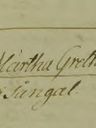 Martha Greth
Tüngal.